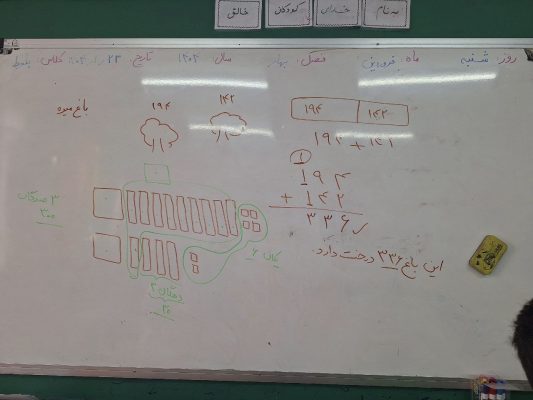 به نام
خدای
کودکان
خالق
روز: شنبه ماه: فروردین فصل: بهار سال: ۱۴۰۳ تاریخ: کلاس:
باغ میوه
۱۹۴ ۱۴۲
۱۹۴ ۱۴۲
۱۹۴ + ۱۴۲
۱
۱۹۴
+ ۱۴۲
۳۳۶
۳ صدگان
۳۰۰
یکان ۶
دهگان ۳
۳۰
این باغ ۳۳۶ درخت دارد.